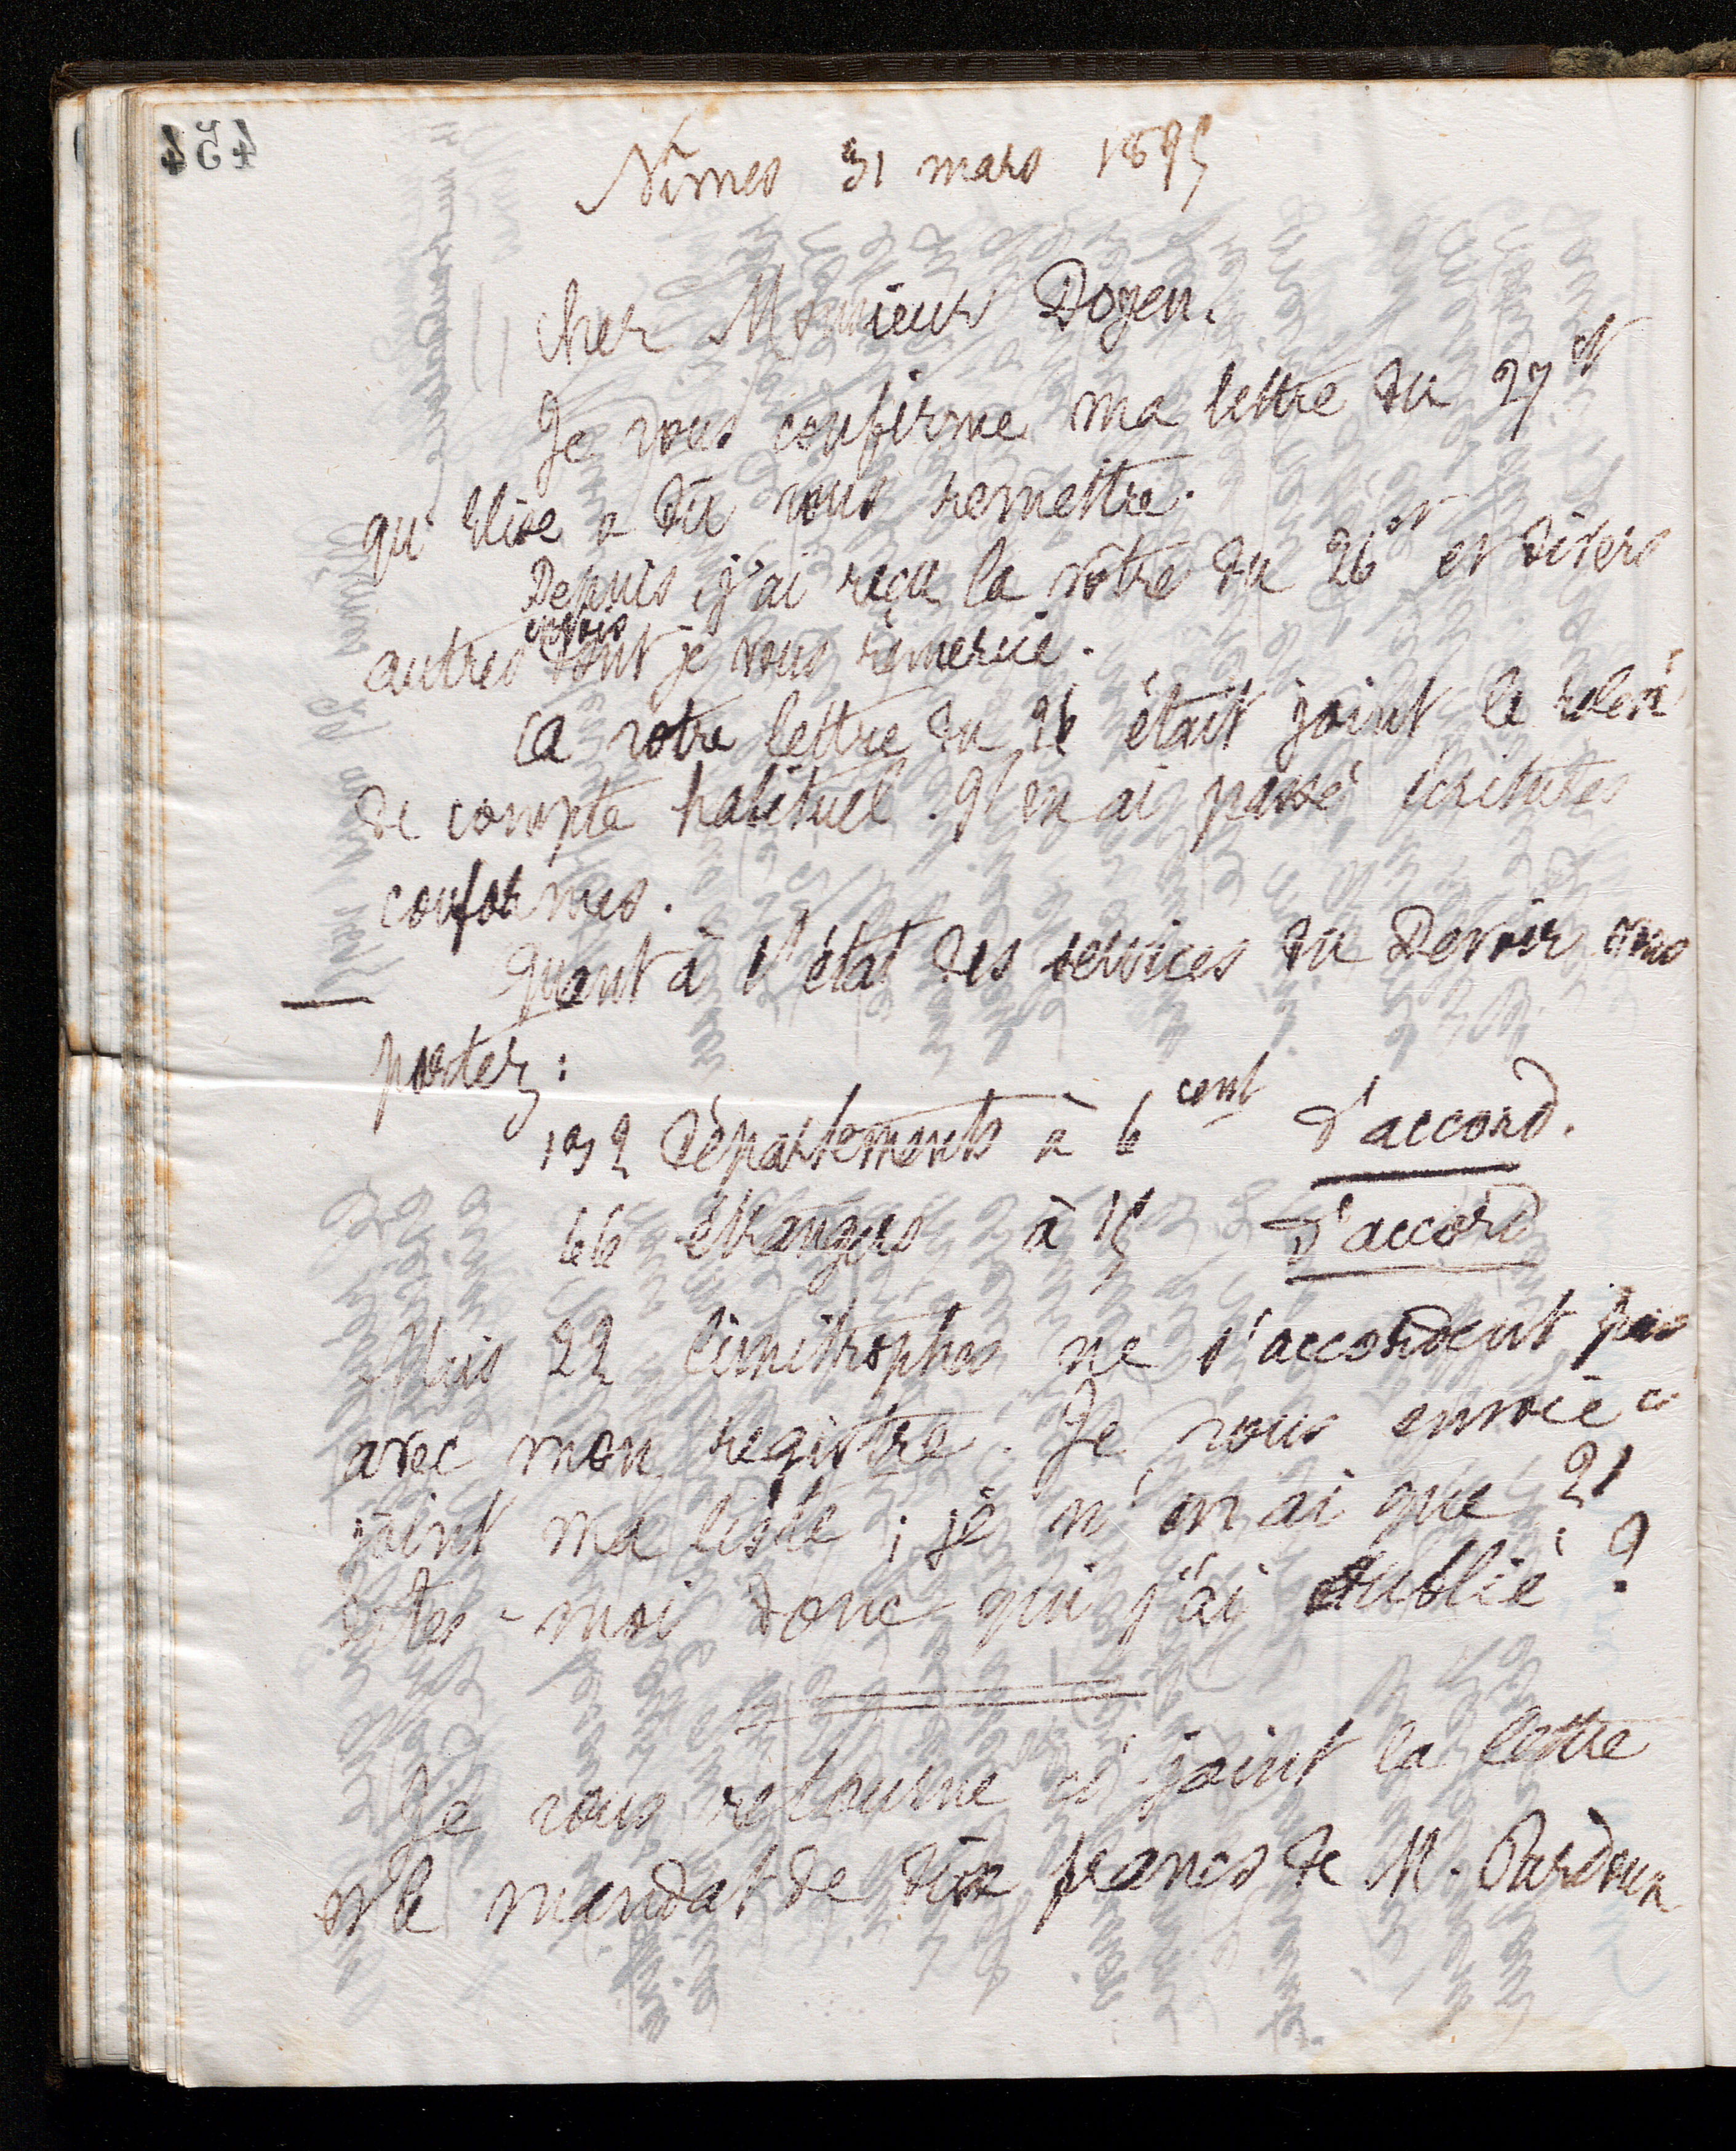 454
Nîmes 31 mars 1895
Cher Monsieur Doyen.
Je vous confirme ma lettre du 27 ct
qu'Élise a dû vous remettre.
Depuis j'ai reçu la vôtre du 26 ct et divers
envois
autres dont je vous remercie.
A votre lettre du 26 était joint le relevé
de compte habituel. J'en ai passé écritures
conformes.
Quant à l'état des services du Devoir vous
portez :
192 Départements à 6 cent d'accord.
66 étrangers à 15 d'accord
Mais 22 limitrophes ne s'accordent pas
avec mon registre. Je vous envoie ci
joint ma liste ; je n'en ai que 21
Dites-moi donc qui j'ai oublié ?
Je vous retourne ci-joint la lettre
et le mandat de dix francs de M.